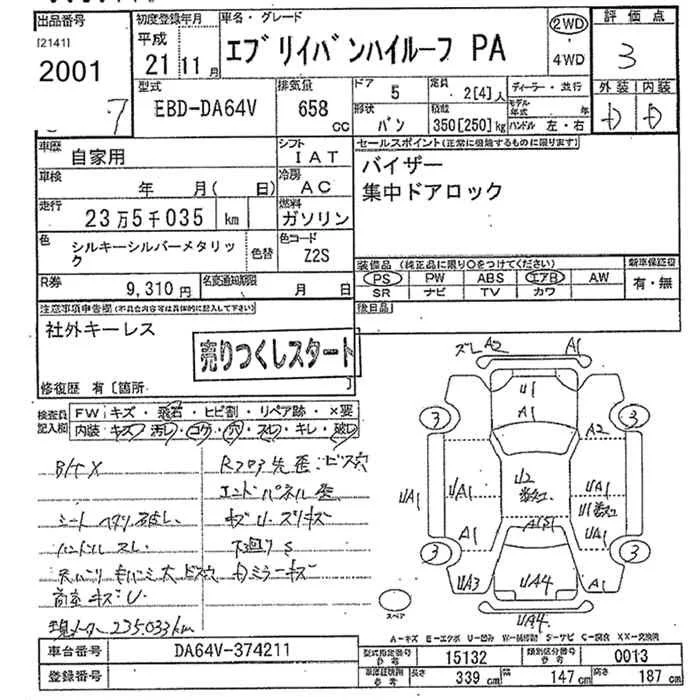 出品番号
[2141]
2001
7
初度登録年月
平成
21 11月
車名・グレード
エブリイバンハイルーフ PA
2WD
・
4WD
評価点
3
外装 内装
D D
型式
EBD-DA64V
排気量
658 CC
ドア
5
形状
バン
定員
2[4]人
積載
350[250]kg
ディーラー・並行
モデル年式 年
ハンドル 左・右
車歴
自家用
シフト
IAT
車検
年 月( 日)
冷房
AC
走行
23万5千035 km
燃料
ガソリン
色
シルキーシルバーメタリック
色替
色コード
Z2S
R券
9,310円
名変通知期限
月 日
セールスポイント(正常に機能するものに限ります)
バイザー
集中ドアロック
装備品 (純正品に限り○をつけてください)
PS PW ABS エアB AW
SR ナビ TV カワ
新車保証書
有・無
後日品
注意事項申告欄(不具合内容等は具体的に記入して下さい)
社外キーレス
売りつくしスタート
修復歴 有[箇所 ]
検査員記入欄
FW キズ・飛石・ヒビ割・リペア跡・×要
内装 キズ・汚し・コゲ・穴・スレ・キレ・破レ
シート ヘタリ 破レ
ハンドル スレ
下廻りS
現メーター 235,033km
ズレ A2 A1
U1
A1
3 3
A2
UA1 UA1
U2
U1
UA1
A1 A1
3 3
UA3 UA4 A1
UA4
スペア
A-キズ E-エクボ U-凹み W-補修跡 S-サビ C-腐食 XX-交換済
車台番号
DA64V-374211
登録番号
型式指定番号 参考
15132
類別区分番号 参考
0013
車庫証明用 参考
長さ 339 cm
幅 147 cm
高さ 187 cm